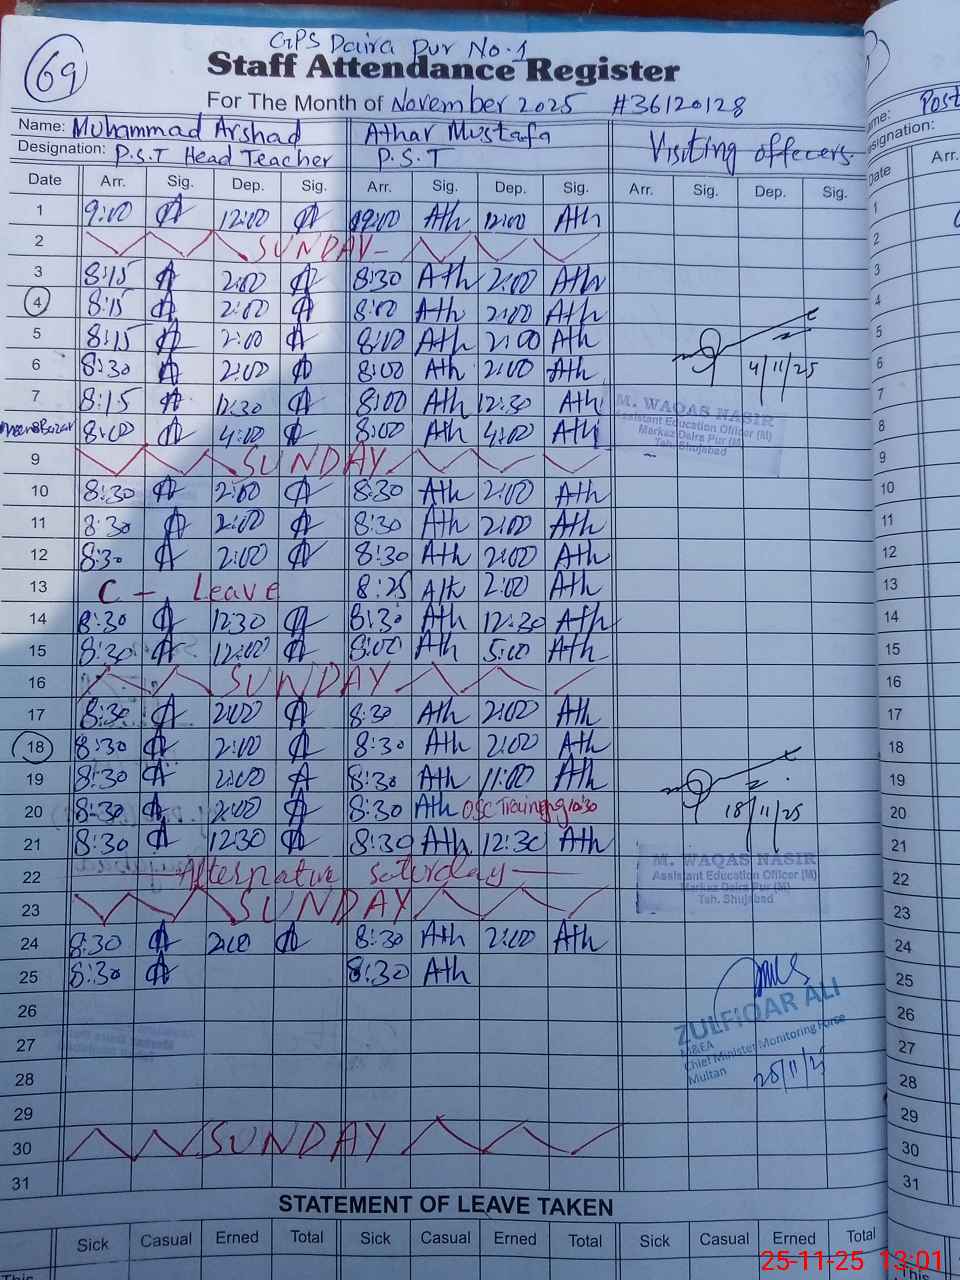 69
GPS Daira Pur No.1
Staff Attendance Register
For The Month of November 2025 #36120128
Name: Muhammad Arshad Athar Mustafa Visiting offecers
Designation: P.S.T Head Teacher P.S.T
Date Arr. Sig. Dep. Sig. Arr. Sig. Dep. Sig. Arr. Sig. Dep. Sig.
1 9:00 12:00 9:00 Ath 12:00 Ath
2 SUNDAY
3 8:15 2:00 8:30 Ath 2:00 Ath
4 8:15 2:00 8:00 Ath 2:00 Ath
5 8:15 2:00 8:00 Ath 2:00 Ath
6 8:30 2:00 8:00 Ath 2:00 Ath 4/11/25
7 8:15 12:30 8:00 Ath 12:30 Ath
8:00 4:00 8:00 Ath 4:00 Ath
M. WAQAS NASIR
Assistant Education Officer (M)
Markaz Daira Pur (M)
Teh. Shujabad
9 SUNDAY
10 8:30 2:00 8:30 Ath 2:00 Ath
11 8:30 2:00 8:30 Ath 2:00 Ath
12 8:30 2:00 8:30 Ath 2:00 Ath
13 C - Leave 8:25 Ath 2:00 Ath
14 8:30 12:30 8:30 Ath 12:30 Ath
15 8:30 12:00 8:00 Ath 5:00 Ath
16 SUNDAY
17 8:30 2:00 8:30 Ath 2:00 Ath
18 8:30 2:00 8:30 Ath 2:00 Ath
19 8:30 2:00 8:30 Ath 11:00 Ath
20 8:30 2:00 8:30 Ath OSC Training 10:30 18/11/25
21 8:30 12:30 8:30 Ath 12:30 Ath
22 Alternative saturday
M. WAQAS NASIR
Assistant Education Officer (M)
Markaz Daira Pur (M)
Teh. Shujabad
23 SUNDAY
24 8:30 2:00 8:30 Ath 2:00 Ath
25 8:30 8:30 Ath
26
ZULFIQAR ALI
M&EA
Chief Minister Monitoring Force
Multan
25/11/25
27
28
29
30 SUNDAY
31
STATEMENT OF LEAVE TAKEN
Sick Casual Erned Total Sick Casual Erned Total Sick Casual Erned Total
This
Post
Designation:
Date Arr.
1
2
3
4
5
6
7
8
9
10
11
12
13
14
15
16
17
18
19
20
21
22
23
24
25
26
27
28
29
30
31
This
25-11-25 13:01